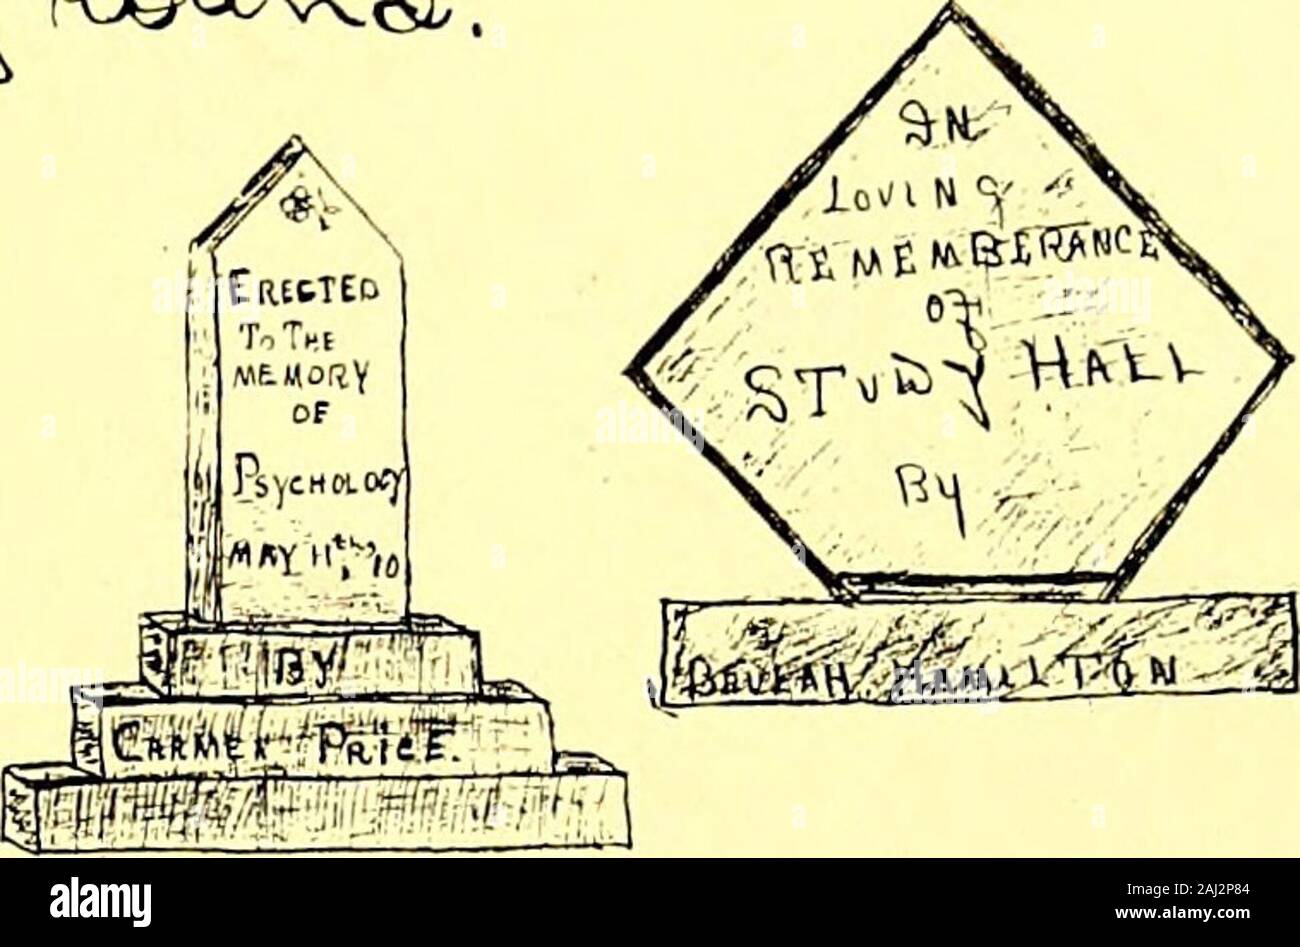 ERECTED
TO THE
MEMORY
OF
PSYCHOLOGY
MAY 11th, '10
BY
CARMEN PRICE.
IN
LOVING
REMEMBERANCE
OF
STUDY HALL
By
BEULAH HAMILTON
alamy
Image ID: 2AJ2P84
www.alamy.com